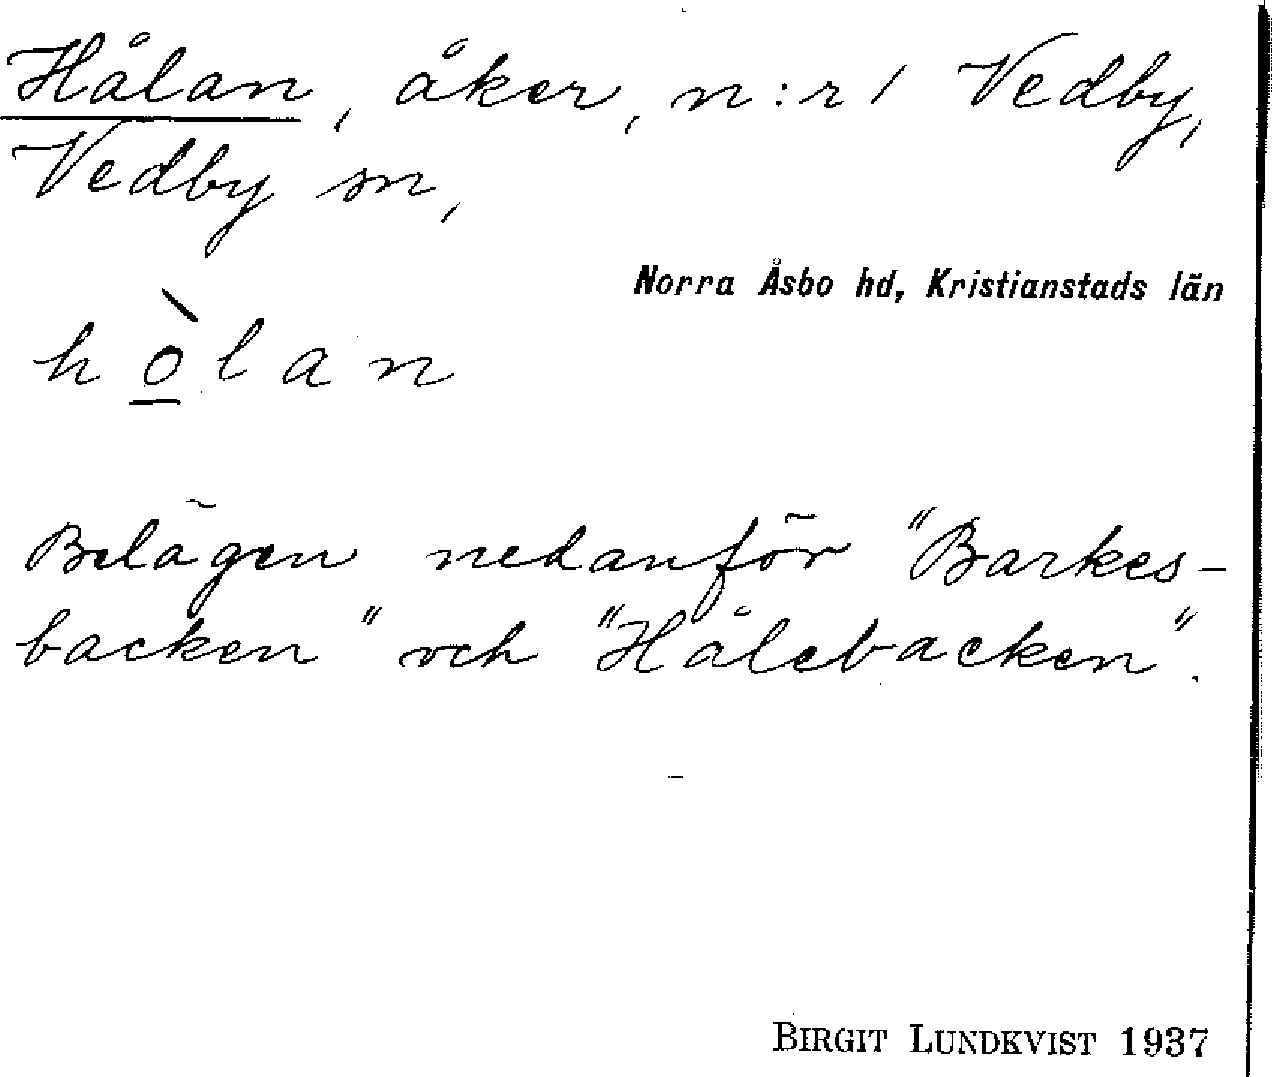 Hålan, åker, n:r 1 Vedby,
Vedby sn,
Norra Åsbo hd, Kristianstads län
hò̱lan
Belägen nedanför "Barkes-
backen" och "Hålebacken".
BIRGIT LUNDKVIST 1937